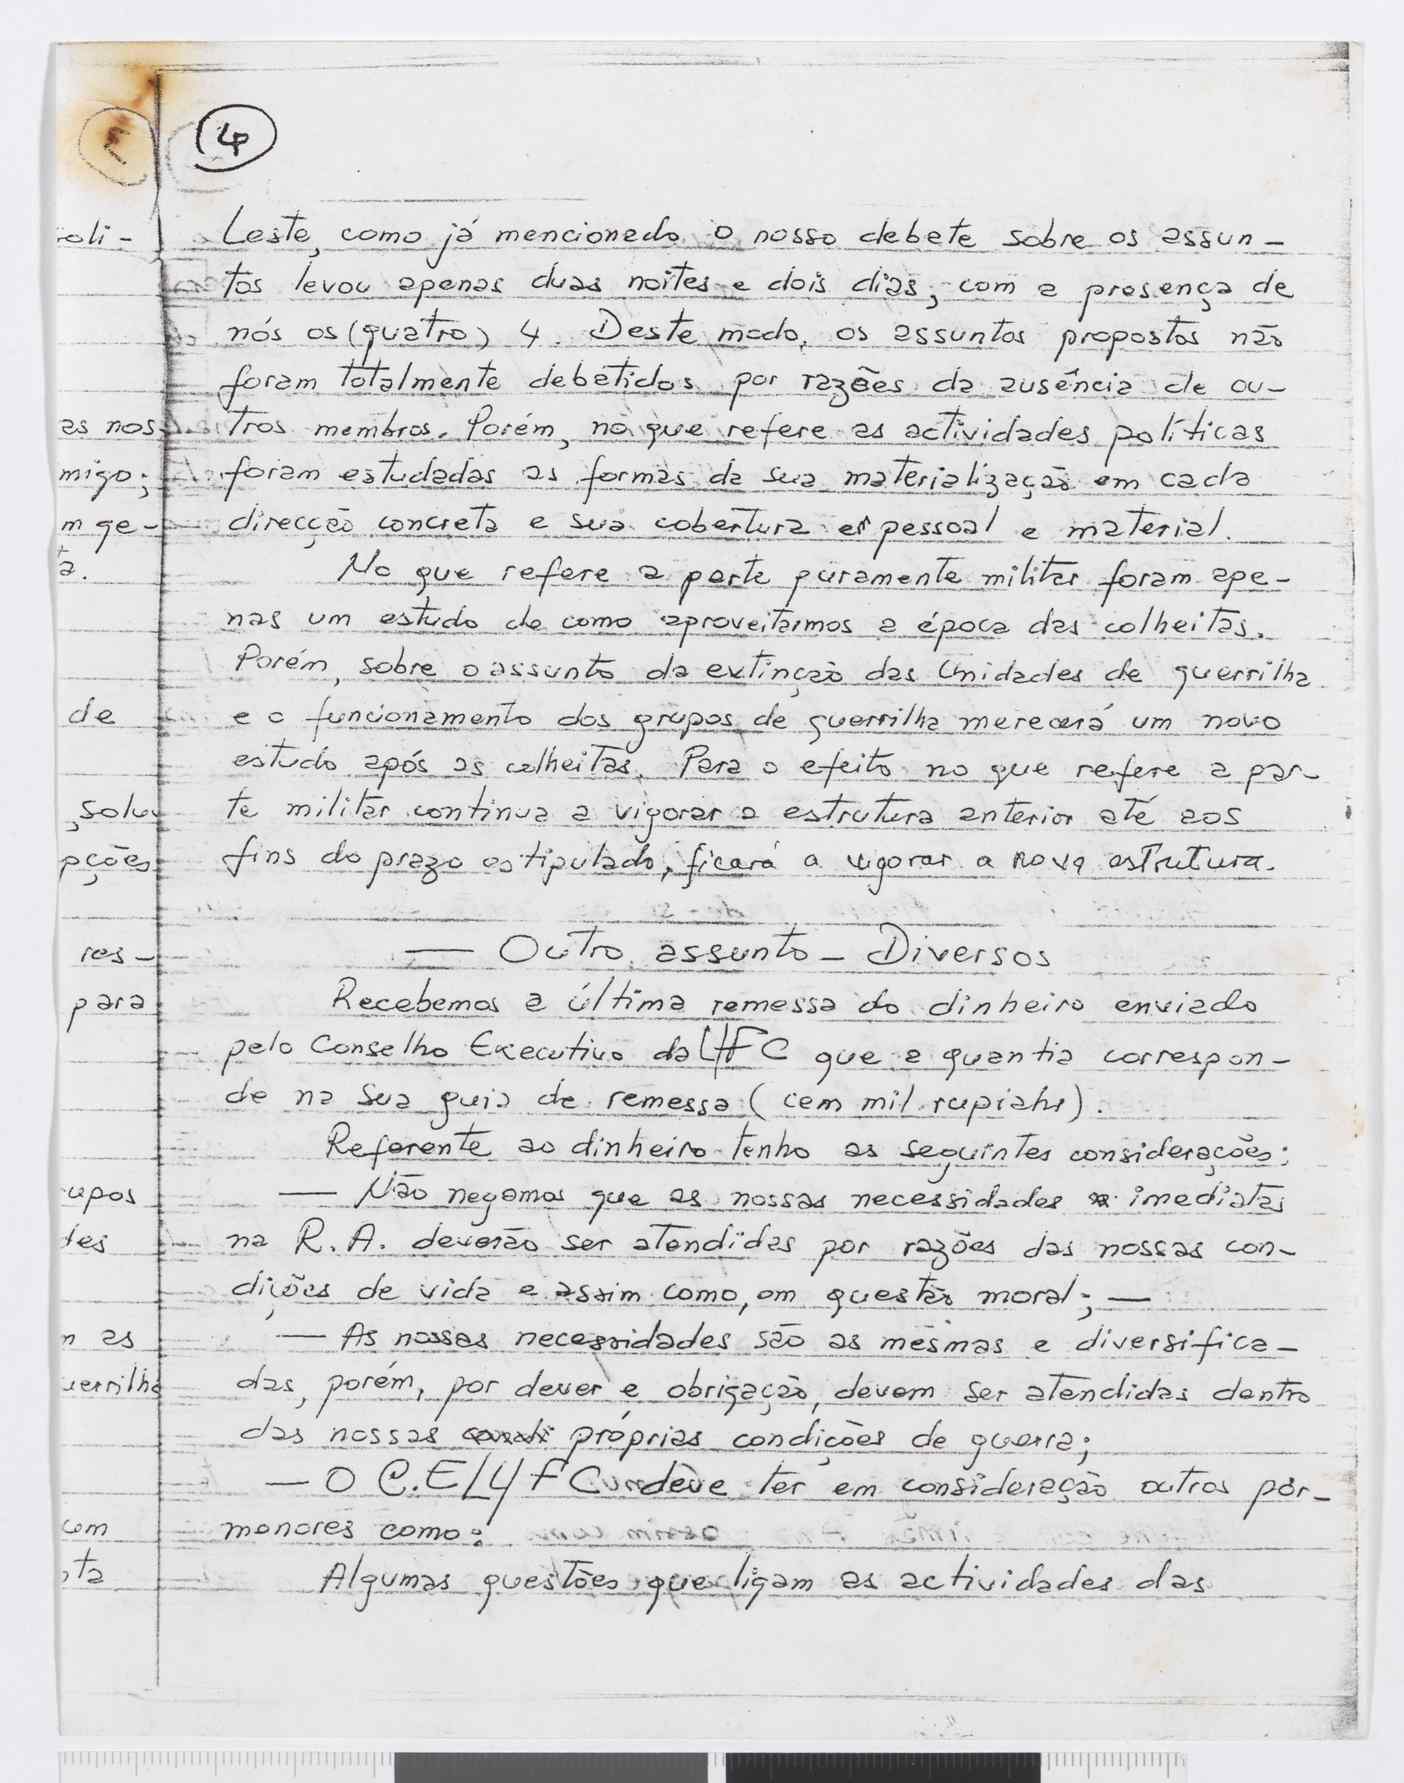 4
Leste, como já mencionado o nosso debate sobre os assun-
tos levou apenas duas noites e dois dias, com a presença de
nós os (quatro) 4. Deste modo, os assuntos propostos não
foram totalmente debatidos por razões da ausência de ou-
tros membros. Porém, no que refere as actividades políticas
foram estudadas as formas da sua materialização em cada
direcção concreta e sua cobertura em pessoal e material.
No que refere a parte puramente militar foram ape-
nas um estudo de como aproveitarmos a época das colheitas.
Porém, sobre o assunto da extinção das Unidades de guerrilha
e o funcionamento dos grupos de guerrilha merecerá um novo
estudo após as colheitas. Para o efeito no que refere a par-
te militar continua a vigorar a estrutura anterior até aos
fins do prazo estipulado, ficará a vigorar a nova estrutura.
— Outro assunto — Diversos
Recebemos a última remessa do dinheiro enviado
pelo Conselho Executivo da LFC que a quantia correspon-
de na sua guia de remessa (cem mil rupiahs).
Referente ao dinheiro tenho as seguintes considerações:
— Não negamos que as nossas necessidades imediatas
na R.A. deverão ser atendidas por razões das nossas con-
dições de vida e assim como, em questão moral; —
— As nossas necessidades são as mesmas e diversifica-
das, porém, por dever e obrigação, devem ser atendidas dentro
das nossas próprias condições de guerra;
— O C.E/LFC deve ter em consideração outros por-
menores como:
Algumas questões que ligam as actividades das
oli-
as nos
migo;
m ge-
ta.
de
, solu
pções
res-
para
upos
des
m as
uerrilha
com
ta